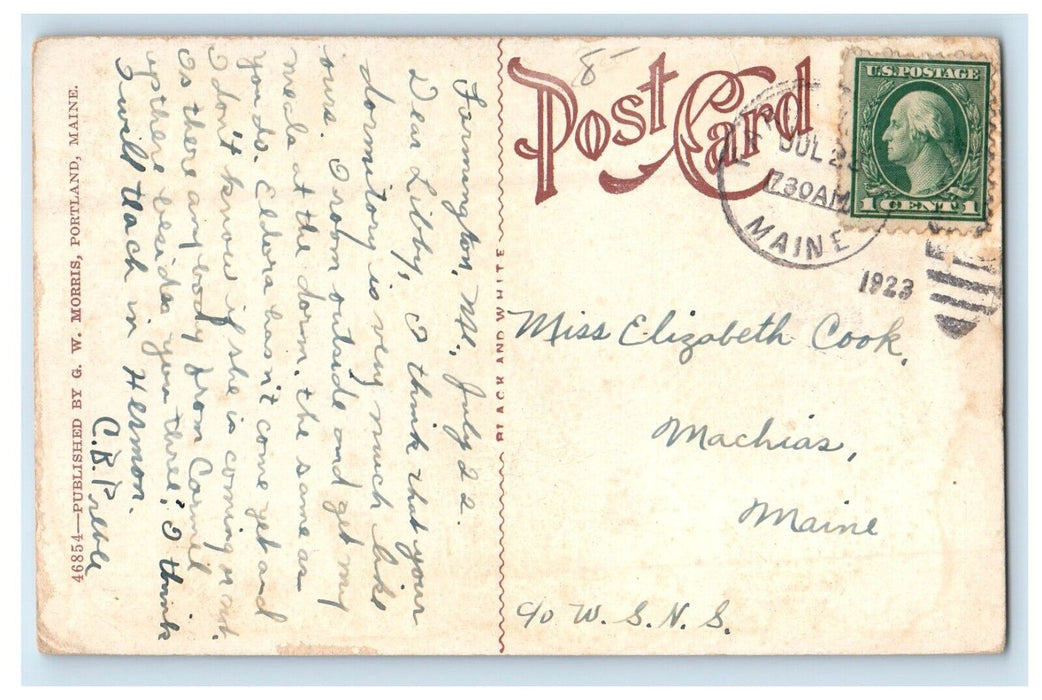 Post Card
8-
JUL 2
730 AM
MAINE
1923
U.S. POSTAGE
1 CENT 1
Farmington, Me, July 22.
Dear Libby, I think that your
dormitory is very much like
ours. I room outside and get my
meals at the dorm. the same as
you do. Eldora hasn't come yet and
I don't know if she is coming or not.
Is there any body from Carmel
up there besides you three? I think
I will teach in Hermon.
C. B. Preble
BLACK AND WHITE
46854—PUBLISHED BY G. W. MORRIS, PORTLAND, MAINE.
Miss Elizabeth Cook,
Machias,
Maine
c/o W. S. N. S.